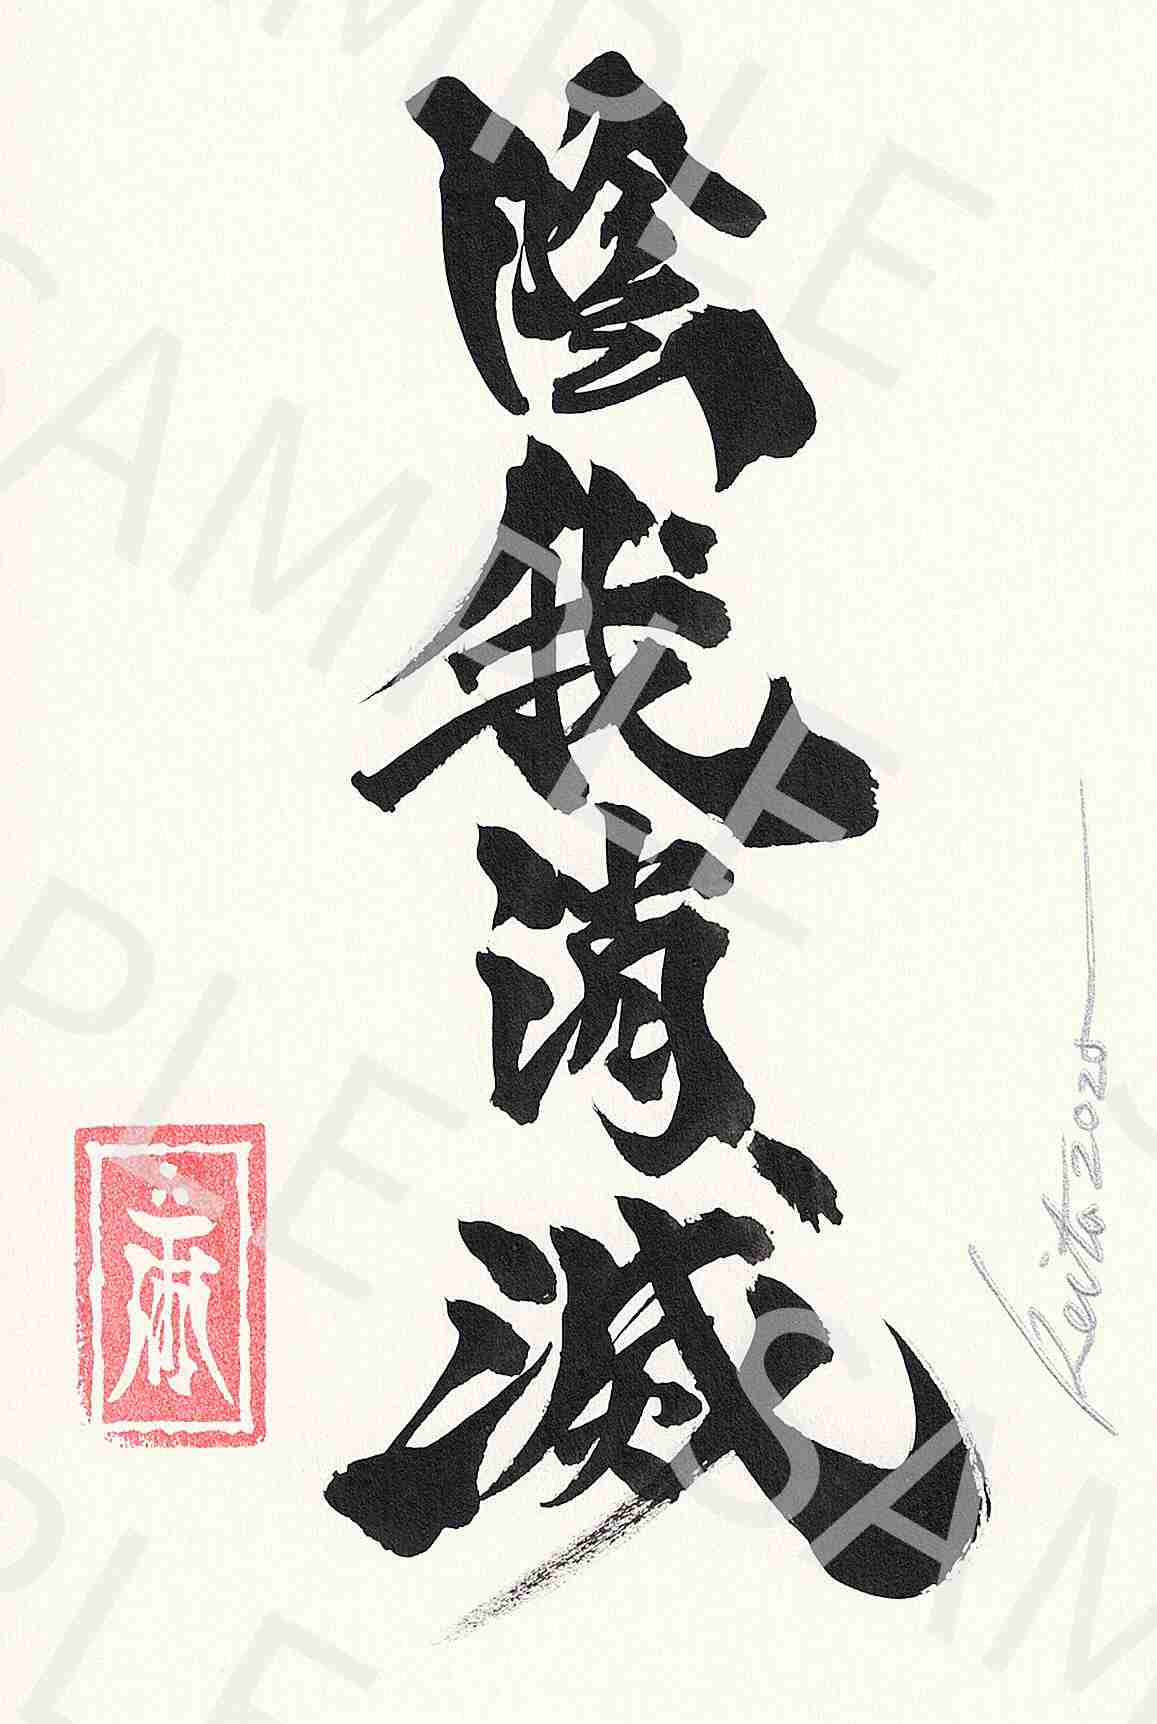 陰我消滅
Keita 2020
SAMPLE
SAMPLE
SAMPLE
SAMPLE